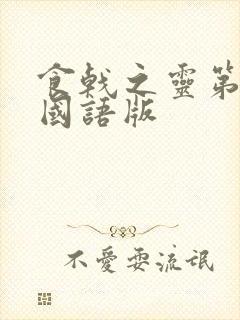 食戟之靈第
國語版
不愛耍流氓